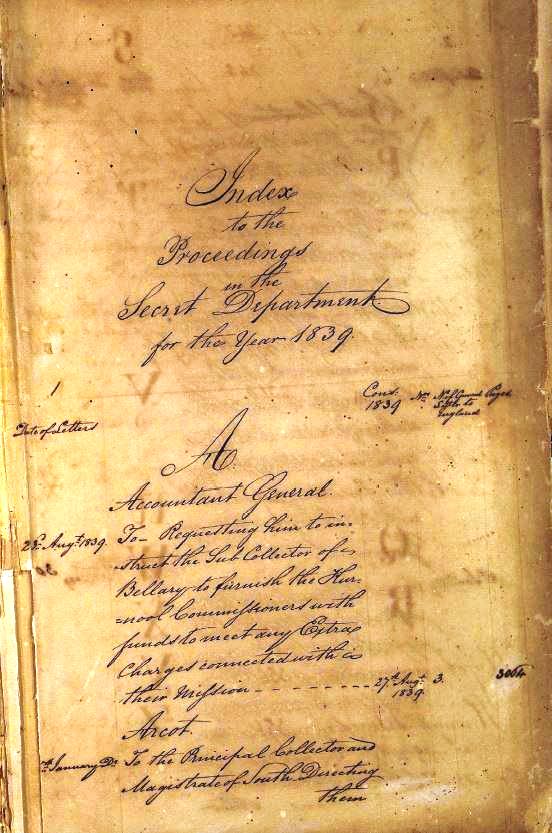 Index
to the
Proceedings
in the
Secret Department
for the Year 1839.
1
Cons.
1839
No.
Pages
England
Date of Letters
A.
Accountant General.
23d. Augt. 1839.
To – Requesting him to in-
-struct the Sub Collector of
Bellary to furnish the Kur-
=nool Commissioners with
funds to meet any Extra
Charges connected with
their Mission
27th. Augt.
1839.
3.
3064
Arcot.
January Do.
To the Principal Collector and
Magistrate of South Directing
them